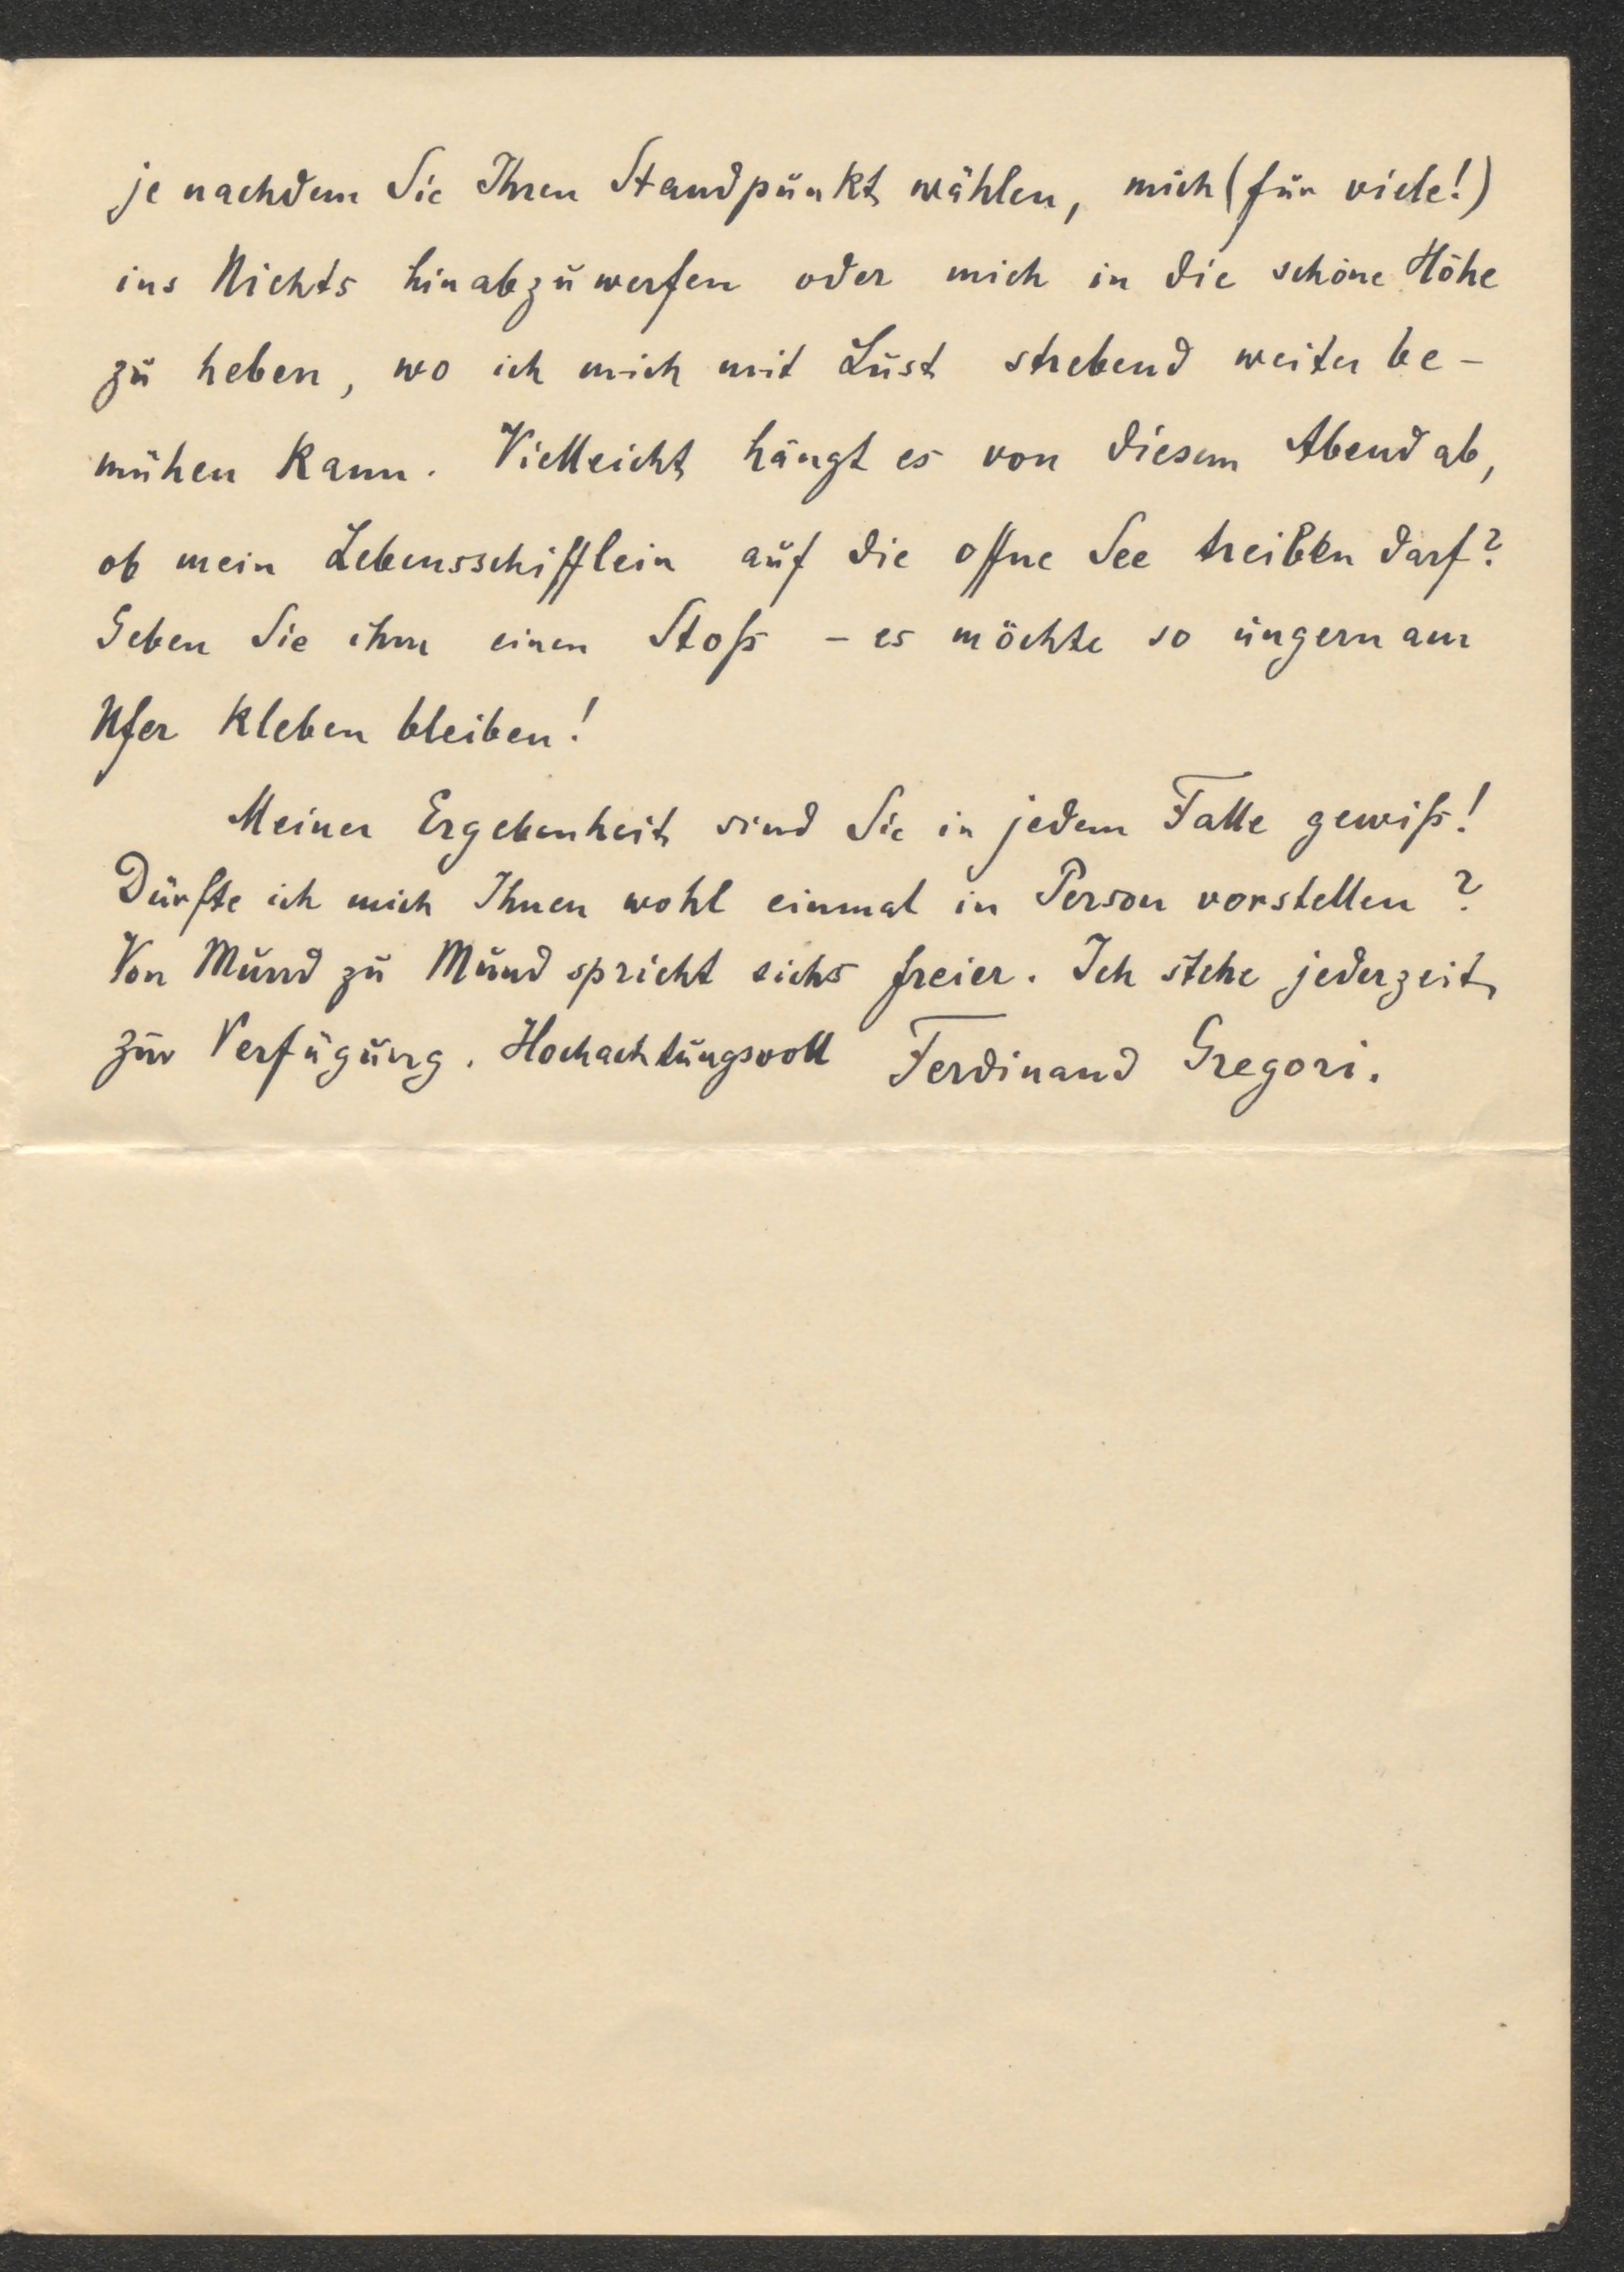 je nachdem Sie Ihren Standpunkt wählen, mich (für viele!)
ins Nichts hinabzuwerfen oder mich in die schöne Höhe
zu heben, wo ich mich mit Lust strebend weiter be-
mühen kann. Vielleicht hängt es von diesem Abend ab,
ob mein Lebensschifflein auf die offne See treiben darf?
Geben Sie ihm einen Stoß - es möchte so ungern am
Ufer kleben bleiben!
Meiner Ergebenheit sind Sie in jedem Falle gewiß!
Dürfte ich mich Ihnen wohl einmal in Person vorstellen?
Von Mund zu Mund spricht sichs freier. Ich stehe jederzeit
zur Verfügung. Hochachtungsvoll Ferdinand Gregori.